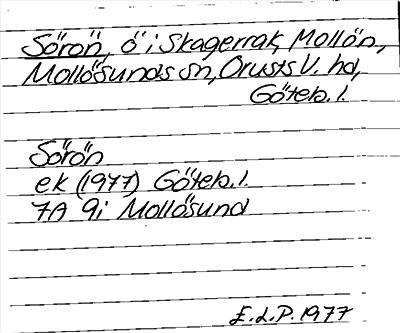 Sörön, ö i Skagerrak, Mollön,
Mollösunds sn, Orusts V. hd,
Göteb. l.
Sörön
ek (1977) Göteb. l.
7A 9i Mollösund
E.L.P. 1977